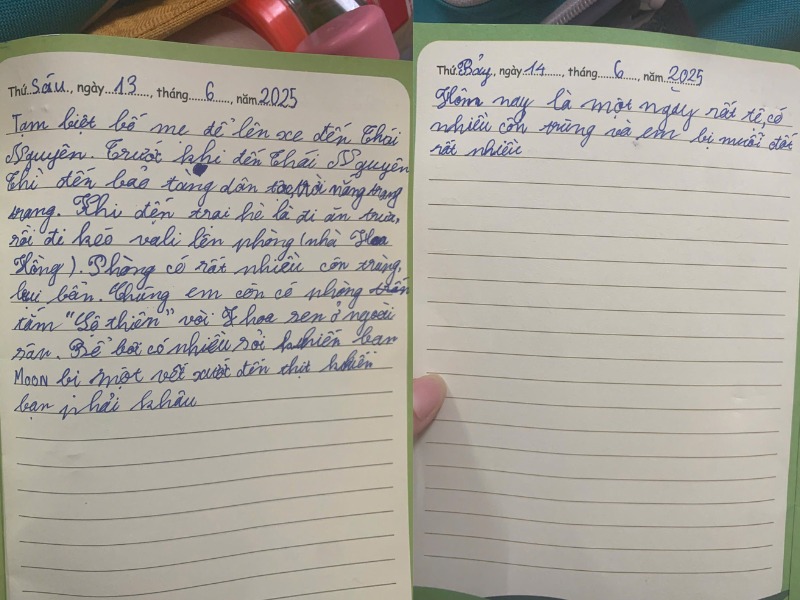 Thứ Sáu, ngày 13, tháng 6, năm 2025
Tạm biệt bố mẹ để lên xe đến Thái
Nguyên. Trước khi đến Thái Nguyên
thì đến bảo tàng dân tộc, trời nắng trang
trang. Khi đến trại hè là đi ăn trưa,
rồi đi kéo vali lên phòng (nhà Hoa
Hồng). Phòng có rất nhiều côn trùng,
bụi bẩn. Chúng em còn có phòng
tắm "Lộ thiên" với 1 hoa sen ở ngoài
sân. Bể bơi có nhiều sỏi khiến bạn
MOON bị một vết xước đến thịt khiến
bạn phải khâu
Thứ Bảy, ngày 14, tháng 6, năm 2025
Hôm nay là một ngày rất tệ, có
nhiều côn trùng và em bị muỗi đốt
rất nhiều